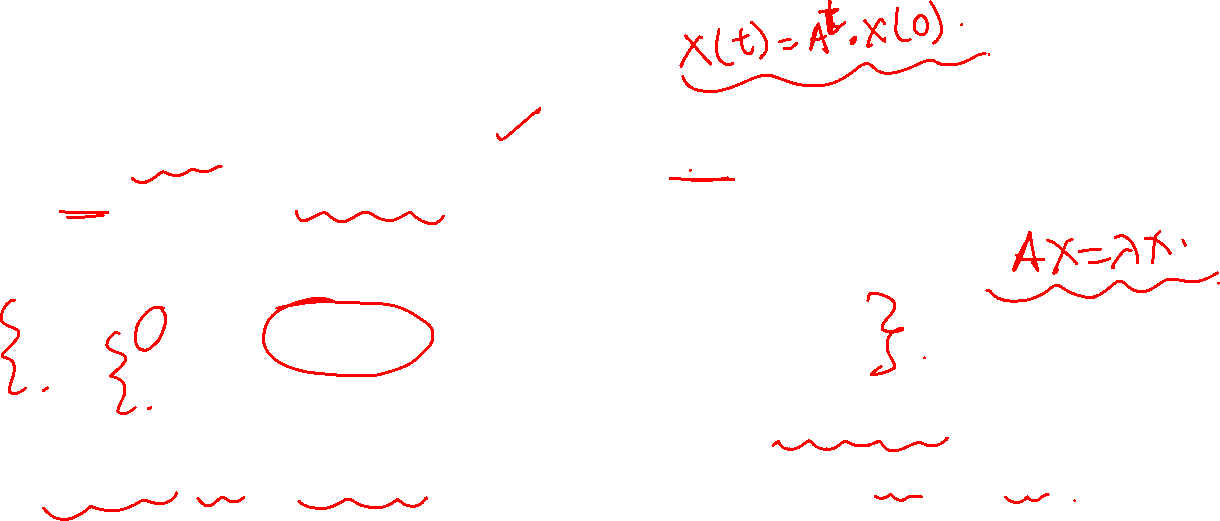 X(t)=A^t·X(0).
AX=λX.
{.
{.
}.